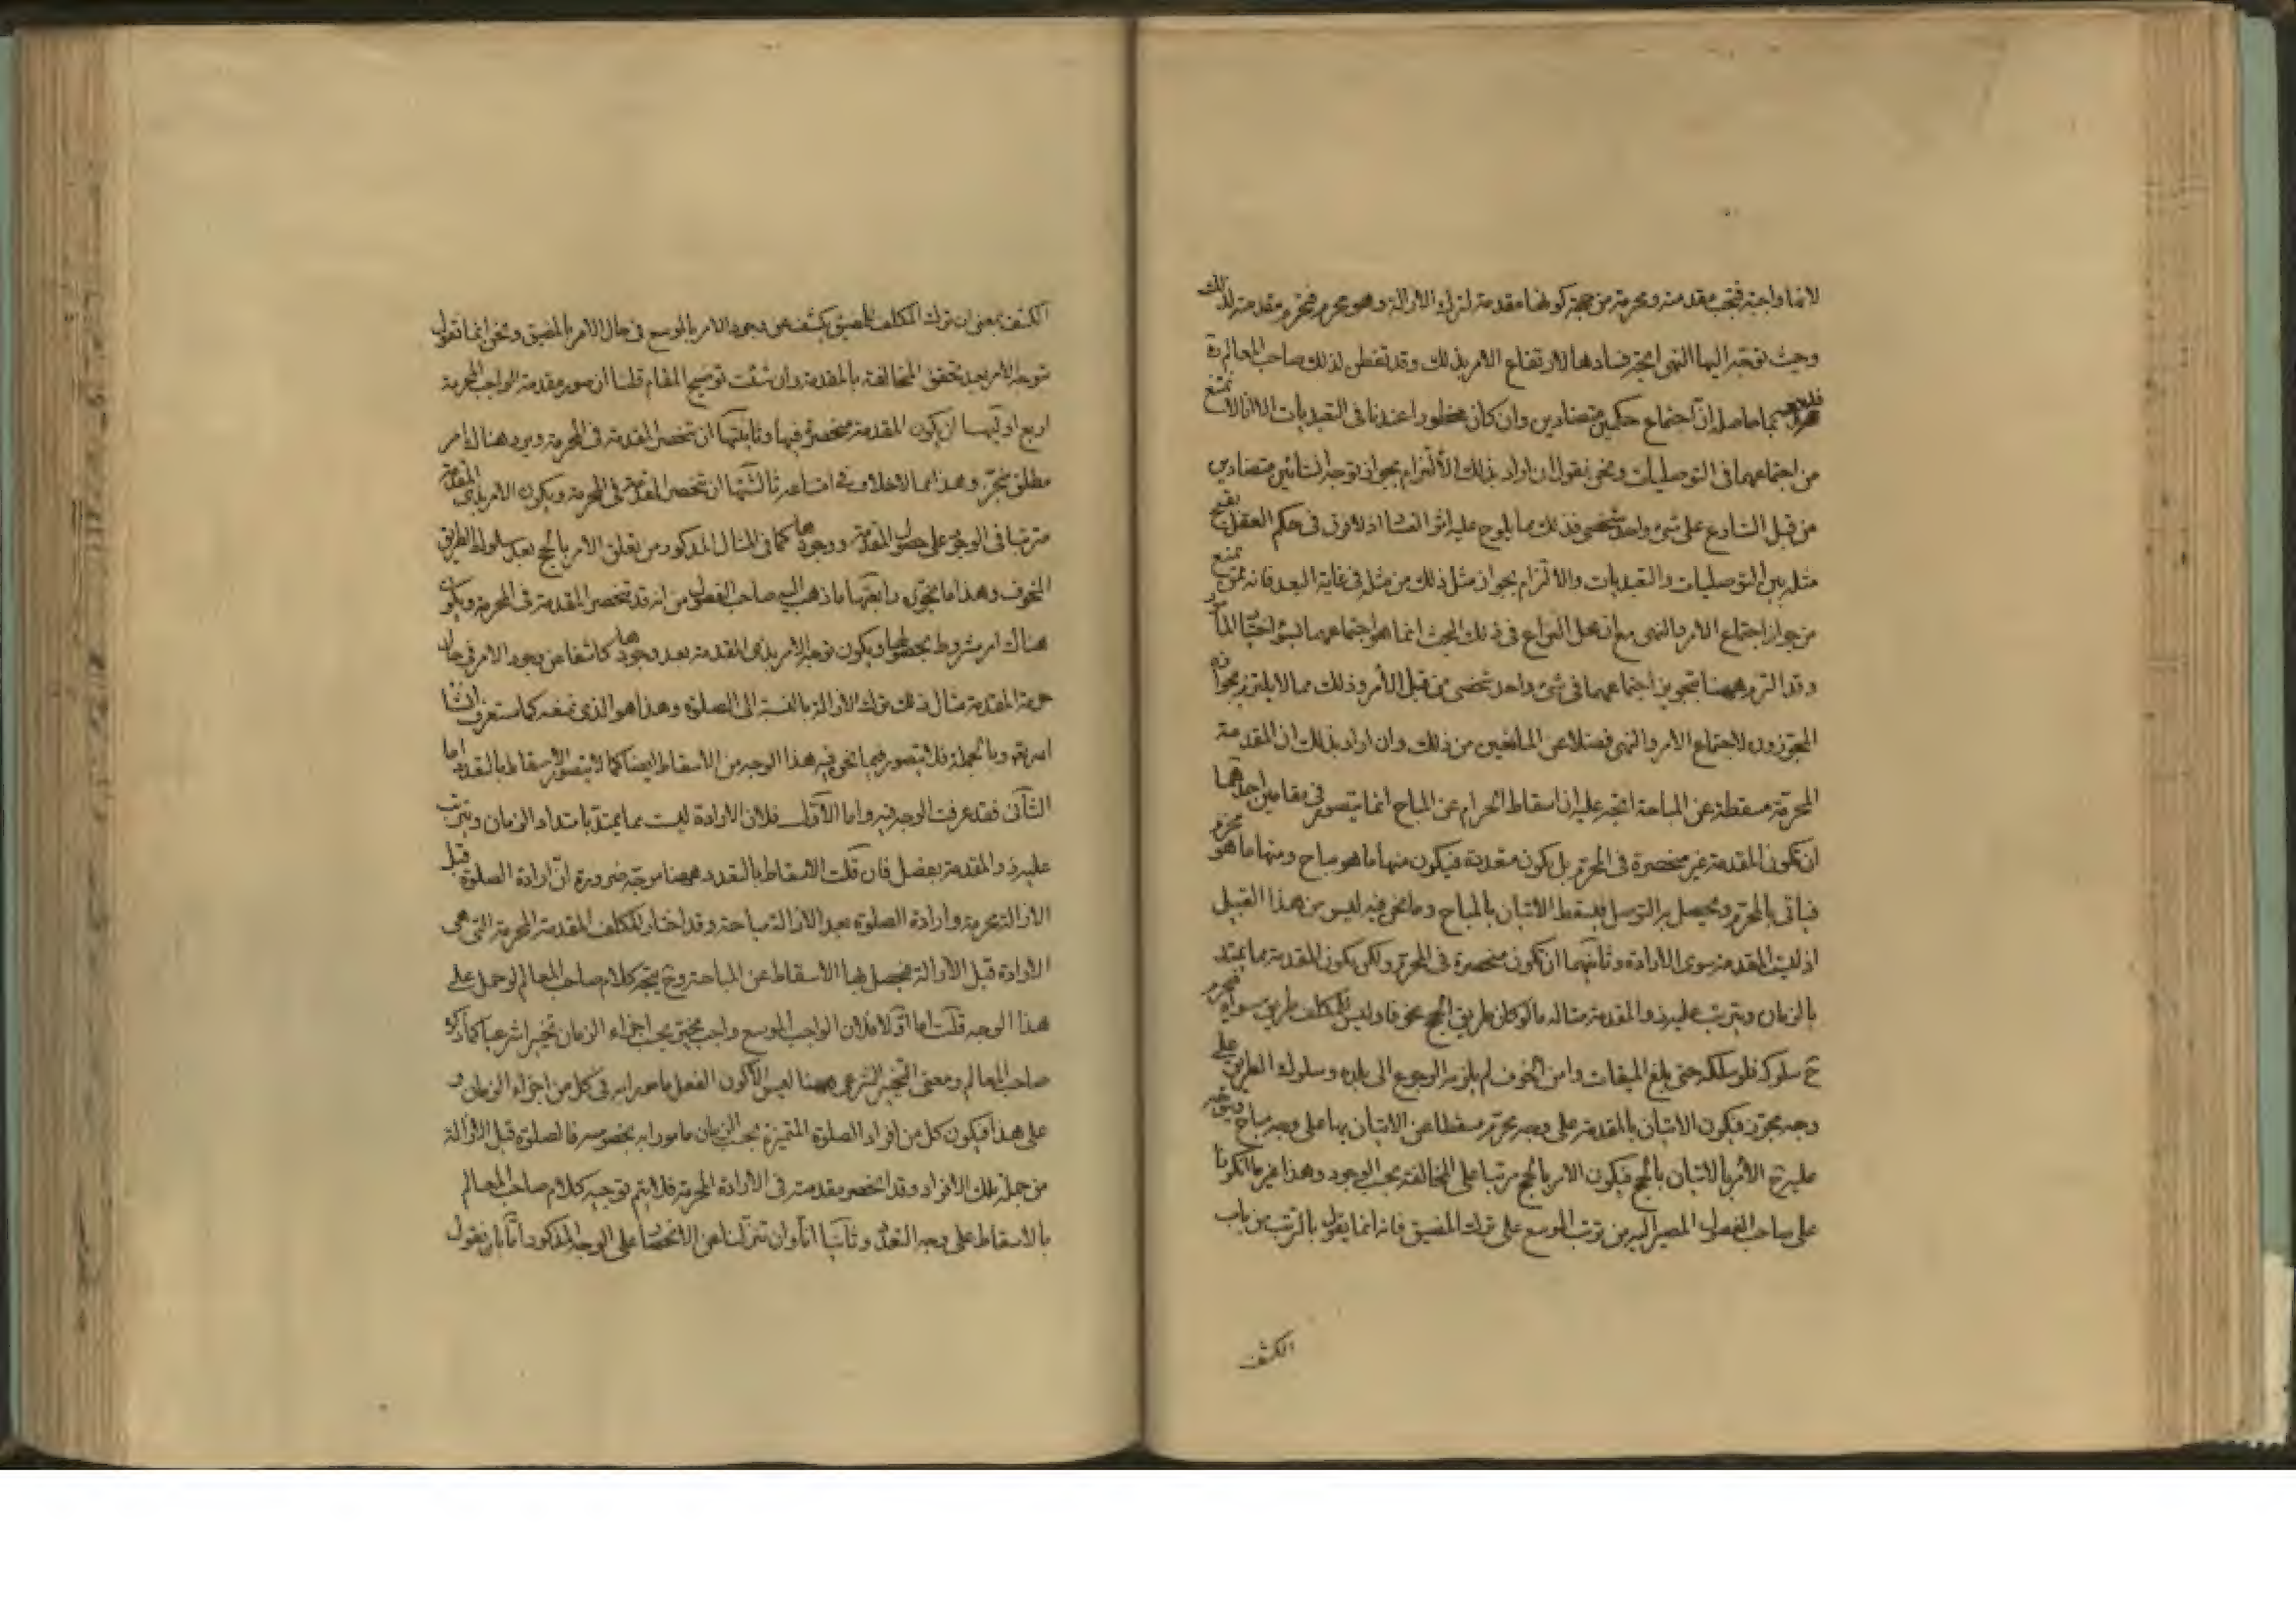 لانها واجبة فتجب مقدمته ومحرمة من جهة كونها مقدمة لترك الازالة وهو محرم فتحرم مقدمته لذلك
وحيث توجه اليها النهى اتجه فسادها لارتفاع الامر بذلك وقد تفطن لذلك صاحب المعالم ره
بما حاصله ان اجتماع حكمين متضادين وان كان محظورا عندنا فى التعبديات الا انه لا يمتنع
من اجتماعهما فى التوصليات ونحن نقول ان اراد بذلك الالتزام بجواز توجه انشائين متضادين
من قبل الشارع على شىء واحد شخصى فذلك مما يلوح عليه اثر الفساد اذ لا فرق فى حكم العقل بقبح
مثله بين التوصليات والتعبديات والالتزام بجواز مثل ذلك من مثله فى غاية البعد فانه يمنع
من جواز اجتماع الامر والنهى مع ان محل النزاع فى ذلك البحث انما هو اجتماعهما بسوء اختيار
وقد التزم ههنا بتجويز اجتماعهما فى شىء واحد شخصى من قبل الآمر وذلك مما لا يلتزم بجوازه
المجوزون لاجتماع الامر والنهى فضلا عن المانعين من ذلك وان اراد بذلك ان المقدمة
المحرمة مسقطة عن المباحة اتجه عليه ان اسقاط الحرام عن المباح انما يتصور فى مقامين احدهما
ان تكون المقدمة غير منحصرة فى المحرم بل يكون متعددة فيكون منها ما هو مباح ومنها ما هو محرم
فياتى بالمحرم ويحصل به التوصل فيسقط الاتيان بالمباح وما نحن فيه ليس من هذا القبيل
اذ ليست المقدمة سوى الارادة وثانيهما ان تكون منحصرة فى المحرم ولكن يكون المقدمة مما يمتد
بالزمان ويترتب عليه ذو المقدمة مثاله ما لو كان طريق الحج مخوفا وليس للمكلف طريق سواه فيحرم
ح سلوكه فلو سلكه حتى بلغ الميقات وامن الخوف لم يلزمه الرجوع الى بلده وسلوك الطريق على
وجه مجوز فيكون الاتيان بالمقدمة على وجه محرم مسقطا عن الاتيان بها على وجه مباح
عليه ح الامر بالاتيان بالحج فيكون الامر بالحج مرتبا على المخالفة بحسب الوجود وهذا غير ما انكرنا
على صاحب الفصول المصير اليه من ترتب الموسع على ترك المضيق فانه انما يقول بالترتب من باب
الكشف
الكشف بمعنى ان ترك المكلف للمضيق يكشف عن وجود الامر بالموسع فى حال الامر بالمضيق ونحن انما نقول
بتوجه الامر بعد تحقق المخالفة بالمقدمة وان شئت توضيح المقام قلنا ان صور مقدمة الواجب المحرمة
اربع اوليها ان يكون المقدمة منحصرة فيها وثانيتها ان تنحصر المقدمة فى المحرمة ويرد هناك امر
مطلق منجز وهذا مما لا خلاف فى امتناعه ثالثتها ان تنحصر المقدمة فى المحرمة ويكون الامر بذى المقدمة
مترتبا فى الوجود على حصول المقدمة ووجودها كما فى المثال المذكور من تعلق الامر بالحج بعد سلوك الطريق
المخوف وهذا ما نجوزه رابعتها ما ذهب اليه صاحب الفصول من انه قد تنحصر المقدمة فى المحرمة ويكون
هناك امر مشروط بحصولها ويكون توجه الامر بذى المقدمة بعد وجودها كاشفا عن وجود الامر فى حال
حرمة المقدمة مثال ذلك ترك الازالة بالنسبة الى الصلوة وهذا هو الذى نمنعه كما ستعرف انشا
الله تعالى وبالجملة فلا يتصور فيما نحن فيه هذا الوجه من الاسقاط ايضا كما لا يتصور الاسقاط بالتعدد اما
الثانى فقد عرفت الوجه فيه واما الاول فلان الارادة ليست مما يمتد بامتداد الزمان ويترتب
عليه ذو المقدمة بعضل فان قلت الاسقاط بالتعدد ههنا موجه ضرورة ان ارادة الصلوة قبل
الازالة محرمة وارادة الصلوة بعد الازالة مباحة وقد اختار المكلف المقدمة المحرمة التى هى
الارادة قبل الازالة فيحصل بها الاسقاط عن المباحة وح يتجه كلام صاحب المعالم لو حمل على
هذا الوجه قلت اما اولا فلان الواجب الموسع واجب مخير بحسب اجزاء الزمان تخييرا شرعيا كما ذكره
صاحب المعالم ومعنى التخيير الشرعى ههنا ليس الا كون الفعل مامورا به فى كل من اجزاء الزمان و
على هذا فيكون كل من افراد الصلوة المتميزة بحسب الزمان مامورا به بخصوصه فالصلوة قبل الازالة
من جملة تلك الافراد وقد انحصر مقدمته فى الارادة المحرمة فلا يتم توجيه كلام صاحب المعالم
بالاسقاط على وجه التعدد وثانيا انا وان تنزلنا عن الانحصار على الوجه المذكور انا بان نقول